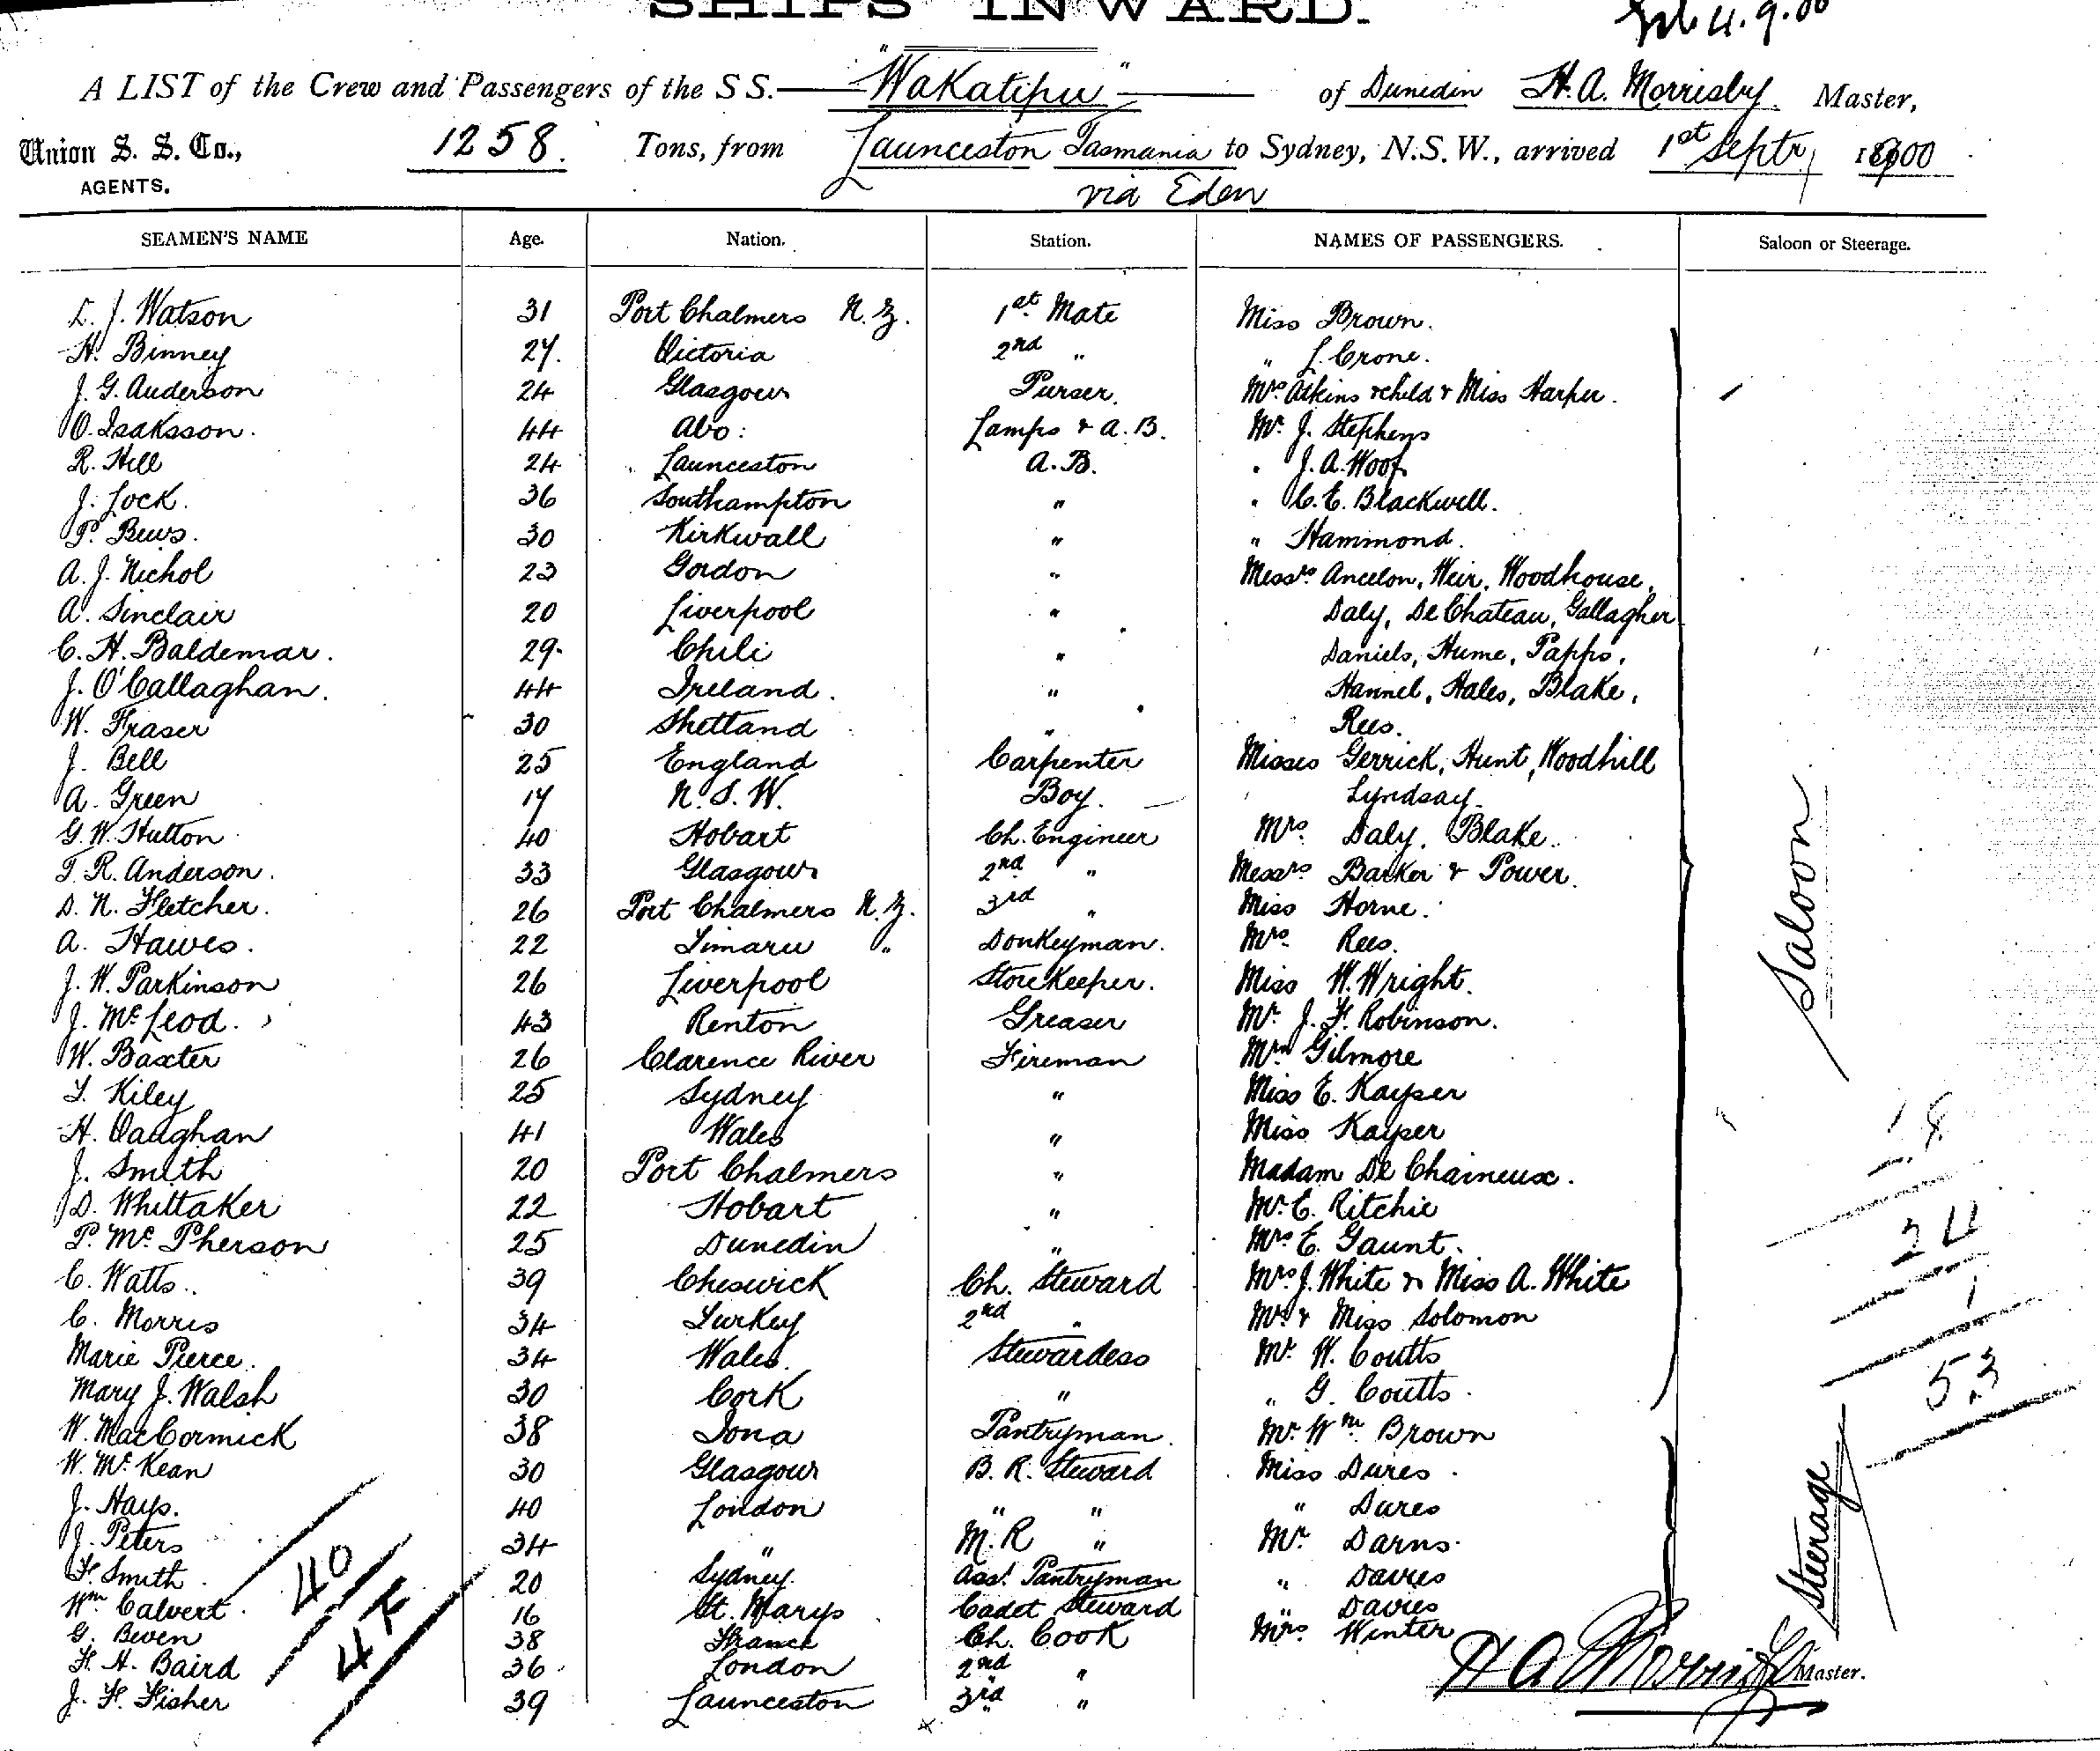 SHIPS INWARD.
4.9.00
A LIST of the Crew and Passengers of the S S. "Wakatipu" of Dunedin H. A. Morrisby. Master,
Union S. S. Co., 1258. Tons, from Launceston Tasmania to Sydney, N.S.W., arrived 1st Septr, 1900
AGENTS.
via Eden
SEAMEN'S NAME Age. Nation. Station. NAMES OF PASSENGERS. Saloon or Steerage.
L. J. Watson 31 Port Chalmers N.Z. 1st Mate Miss Brown.
H. Binney 27. Victoria 2nd " " L. Crone.
J. G. Anderson 24 Glasgow Purser. Mrs Atkins & child & Miss Harper.
O. Isaksson. 44 Abo: Lamps & A.B. Mr. J. Stephens
R. Hill 24 Launceston A.B. " J. A. Woof
J. Lock. 36 Southampton " " C. E. Blackwell.
P. Bews. 30 Kirkwall " " Hammond.
A. J. Nichol 23 Gordon " Messrs Ancelon, Weir, Woodhouse,
A. Sinclair 20 Liverpool " Daly, De Chateau, Gallagher
C. H. Baldemar. 29 Chili " Daniels, Hume, Papps,
J. O'Callaghan. 44 Ireland. " Hannel, Hales, Blake,
W. Fraser 30 Shetland " Rees.
J. Bell 25 England Carpenter Misses Gerrick, Hunt, Woodhill
A. Green 17 N.S.W. Boy. Lyndsay.
G. W. Hutton 40 Hobart Ch. Engineer Mrs. Daly, Blake.
T. R. Anderson. 33 Glasgow 2nd " Messrs Barker & Power.
D. N. Fletcher. 26 Port Chalmers N.Z. 3rd " Miss Horne.
A. Hawes. 22 Timaru " Donkeyman. Mrs. Rees.
J. W. Parkinson 26 Liverpool Storekeeper. Miss W. Wright.
J. McLeod. 43 Renton Greaser Mr. J. F. Robinson.
W. Baxter 26 Clarence River Fireman Mrs Gilmore
T. Kiley 25 Sydney " Miss E. Kayser
H. Vaughan 41 Wales " Miss Kayser
J. Smith 20 Port Chalmers " Madam De Chaineux.
D. Whittaker 22 Hobart " Mr. E. Ritchie
P. McPherson 25 Dunedin " Mrs E. Gaunt.
C. Watts. 39 Cheswick Ch. Steward Mrs J. White & Miss A. White
C. Morris 34 Turkey 2nd " & Miss Solomon
Marie Pierce. 34 Wales. Stewardess Mr. W. Coutts
Mary J. Walsh 30 Cork " " G. Coutts.
W. MacCormick 38 Iona Pantryman. Mr. Wm. Brown
W. McKean 30 Glasgow B. R. Steward Miss Dures.
J. Hays. 40 London " " " Dures
J. Peters 34 " M. R " Mr. Darns.
F. Smith. 20 Sydney. Asst. Pantryman " Davies
Wm Calvert. 16 St. Marys Cadet Steward " Davies
G. Beven 38 France Ch. Cook Mrs. Winter
F. A. Baird 36 London 2nd "
J. F. Fisher 39 Launceston 3rd "
Saloon
18
24
1
53
Steerage
40
H A Morrisby Master.